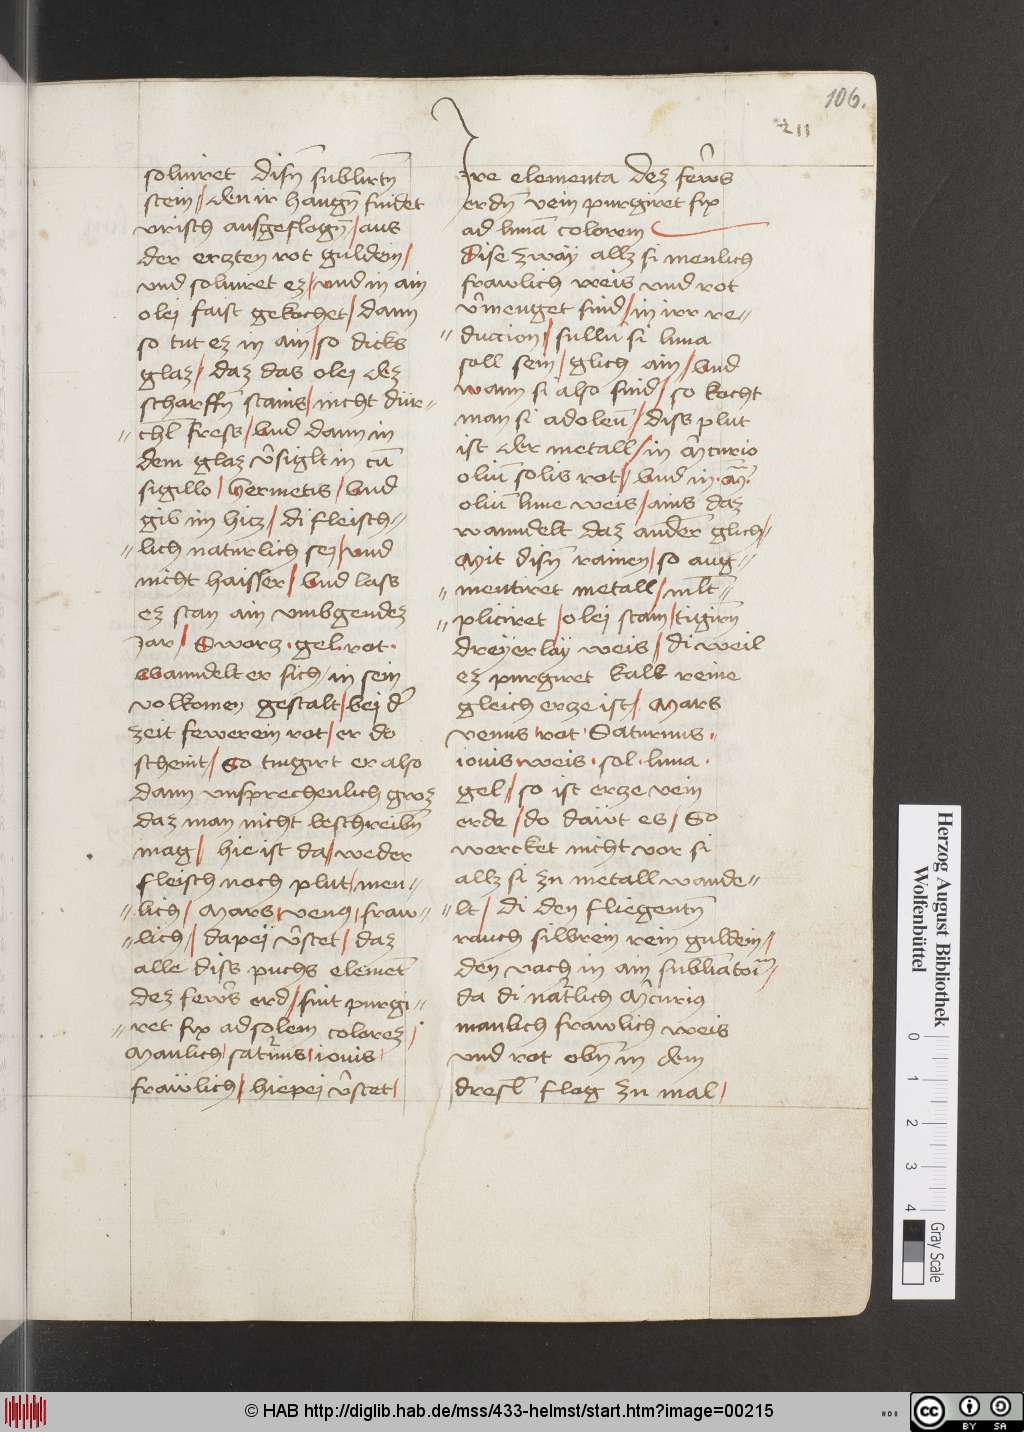 106.
211
soluiret disn̄ sublirtn̄
stein / den ir haugn̄ findet
vrisch ausgeflogn̄ / aus
der erzten rot guldein /
vnd soluiret ez / vnd in ain
olei faist gekochet / dann
so tut ez in ain / so dicks
glaz / daz das olei dez
scharffn̄ stains / nicht dür〃
〃chl̄ fress / Vnd dann in
dem glaz v̄siglt in cū
sigillo / hermetis / Vnd
gib im hicz / di fleisch〃
〃lich naturlich sej / vnd
nicht haisser / Vnd lass
ez stan ain vmbgendez
Jar / Swarz · gel · rot ·
Wanndelt er sich / in sein
volkomen gestalt / bej d̄
zeit fewerein rot / er do
scheint / So tingirt er also
dann vnsprechenlich groz
daz man nicht beschreibn̄
mag / hie ist da / weder
fleisch noch plut / men〃
〃lich / Mars / venus / fraw〃
〃lich / dapeÿ v̄stet / daz
alle diss puchs elemēt
dez few̄rs erd / sint purgi〃
〃ret fix ad solem colorez /
Manlich / saturnus / iouis /
fraẅlich / hiepej v̄stet /
Jre elementa dez few̄rs
erdn̄ vein purgiret fix
ad lunā colorem
Dise zwaÿ allz si menlich
frawlich weis vnd rot
v̄menget sind / in irr re〃
〃duccion / sullū si luna
soll sein / glich ain / Vnd
wann si also sind / so kocht
man si ad oleū / diss plut
ist der metall / in m̄curio
oliū solis rot / Vnd in · m̄ ·
oliū lune weis / ains daz
wanndelt daz ander̄ glich /
Mit disn̄ rainen / so aug〃
〃mentiret metall / ml̄t〃
〃pliciret / olei stain / tīgirn̄
dreÿerlaÿ weis / di weil
ez purgiret kalk reine
gleich ercze ist / Mars
venus rot · Saturnus ·
iouis weis · sol · luna ·
gel / so ist ercze vein
erde / do daẅt es / So
wercket nicht vor si
allz si zu metall wande〃
〃lt / di den fliegentn̄
rauch silbrein rein guldein /
den vach in ain subliatoīm /
da di nat̄lich m̄curiꝰ
manlich frawlich weis
vnd rot obn̄ in dem
dresl̄ flog zu mal /
Herzog August Bibliothek
Wolfenbüttel
0 1 2 3 4
Gray Scale
© HAB http://diglib.hab.de/mss/433-helmst/start.htm?image=00215
cc BY SA